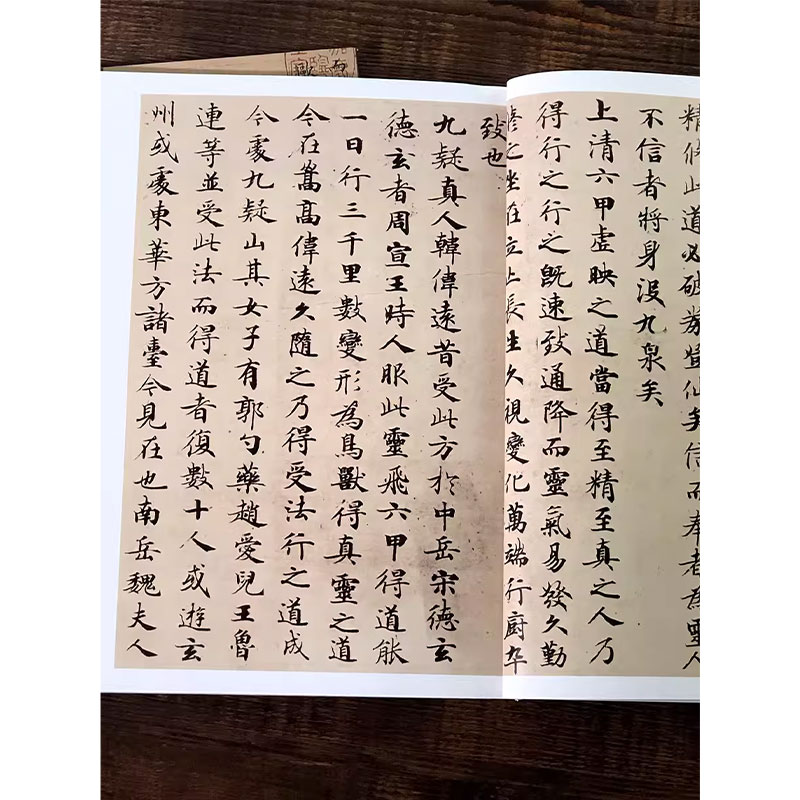 精脩此道必破券登仙矣信而奉者為靈人
不信者將身没九泉矣
上清六甲虛映之道當得至精至真之人乃
得行之行之既速致通降而靈氣易發久勤
脩之坐在立亡長生久視變化萬端行廚卒
致也
九疑真人韓偉遠昔受此方於中岳宋德玄
德玄者周宣王時人服此靈飛六甲得道能
一日行三千里數變形為鳥獸得真靈之道
今在嵩高偉遠久隨之乃得受法行之道成
今處九疑山其女子有郭勺藥趙愛兒王魯
連等並受此法而得道者復數十人或遊玄
州或處東華方諸臺今見在也南岳魏夫人